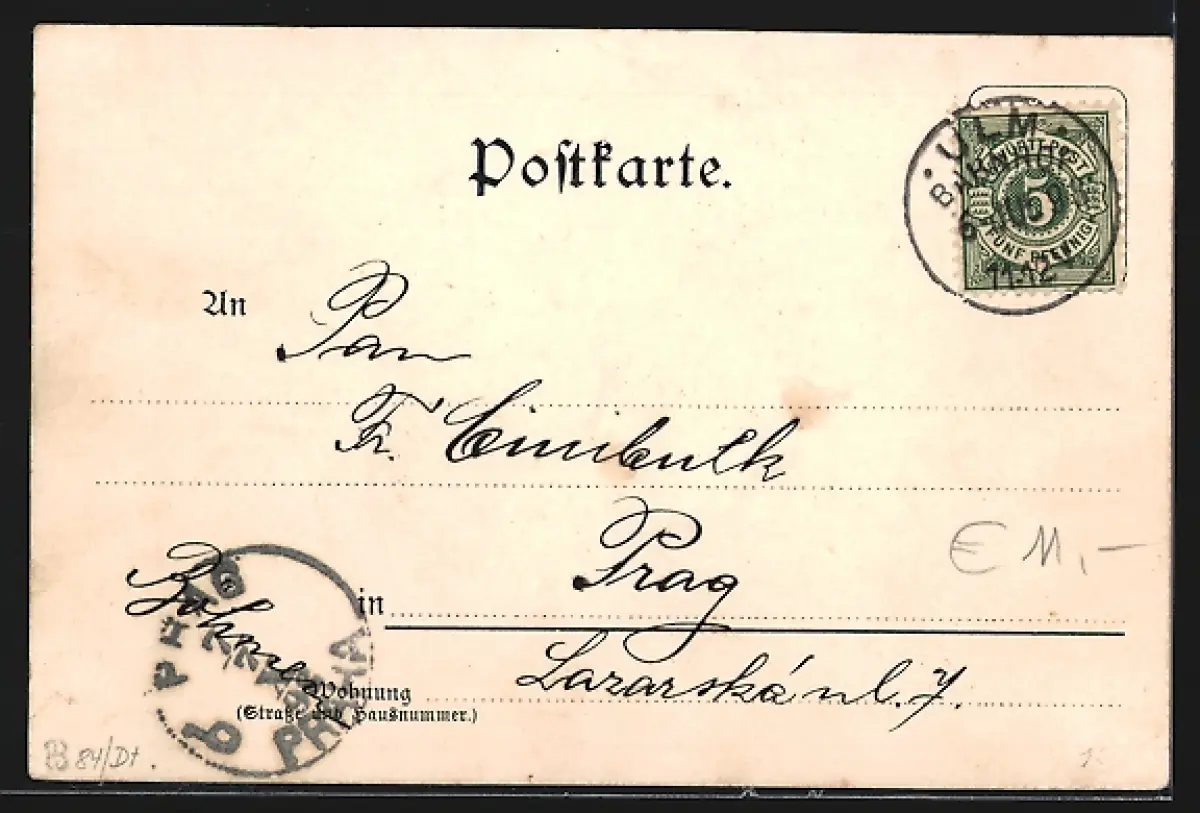 Postkarte.
ULM
BAHNHOF
11-12
WÜRTT. POST
5
FÜNF PFENNIG
An Pan
Fr.
in Prag
Böhmen
Wohnung Lazarská ul. 7.
(Straße und Hausnummer.)
PRAG
PRAHA
€ 11,-
84/Dt.